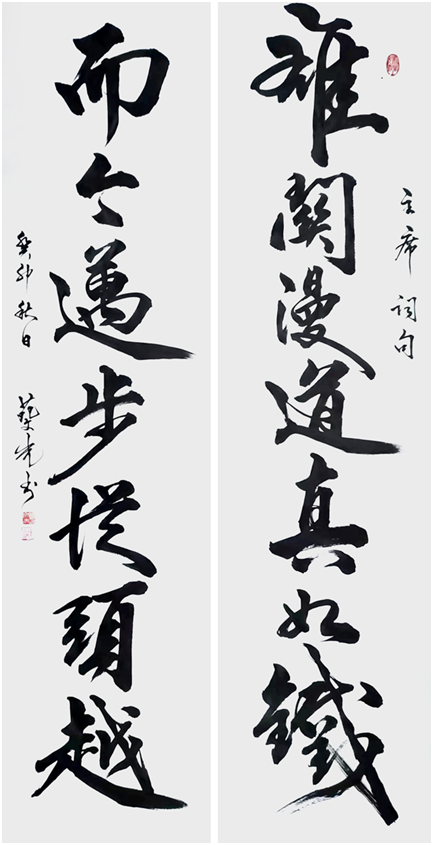 主席詞句
雄關漫道真如鐵
而今邁步從頭越
癸卯秋日